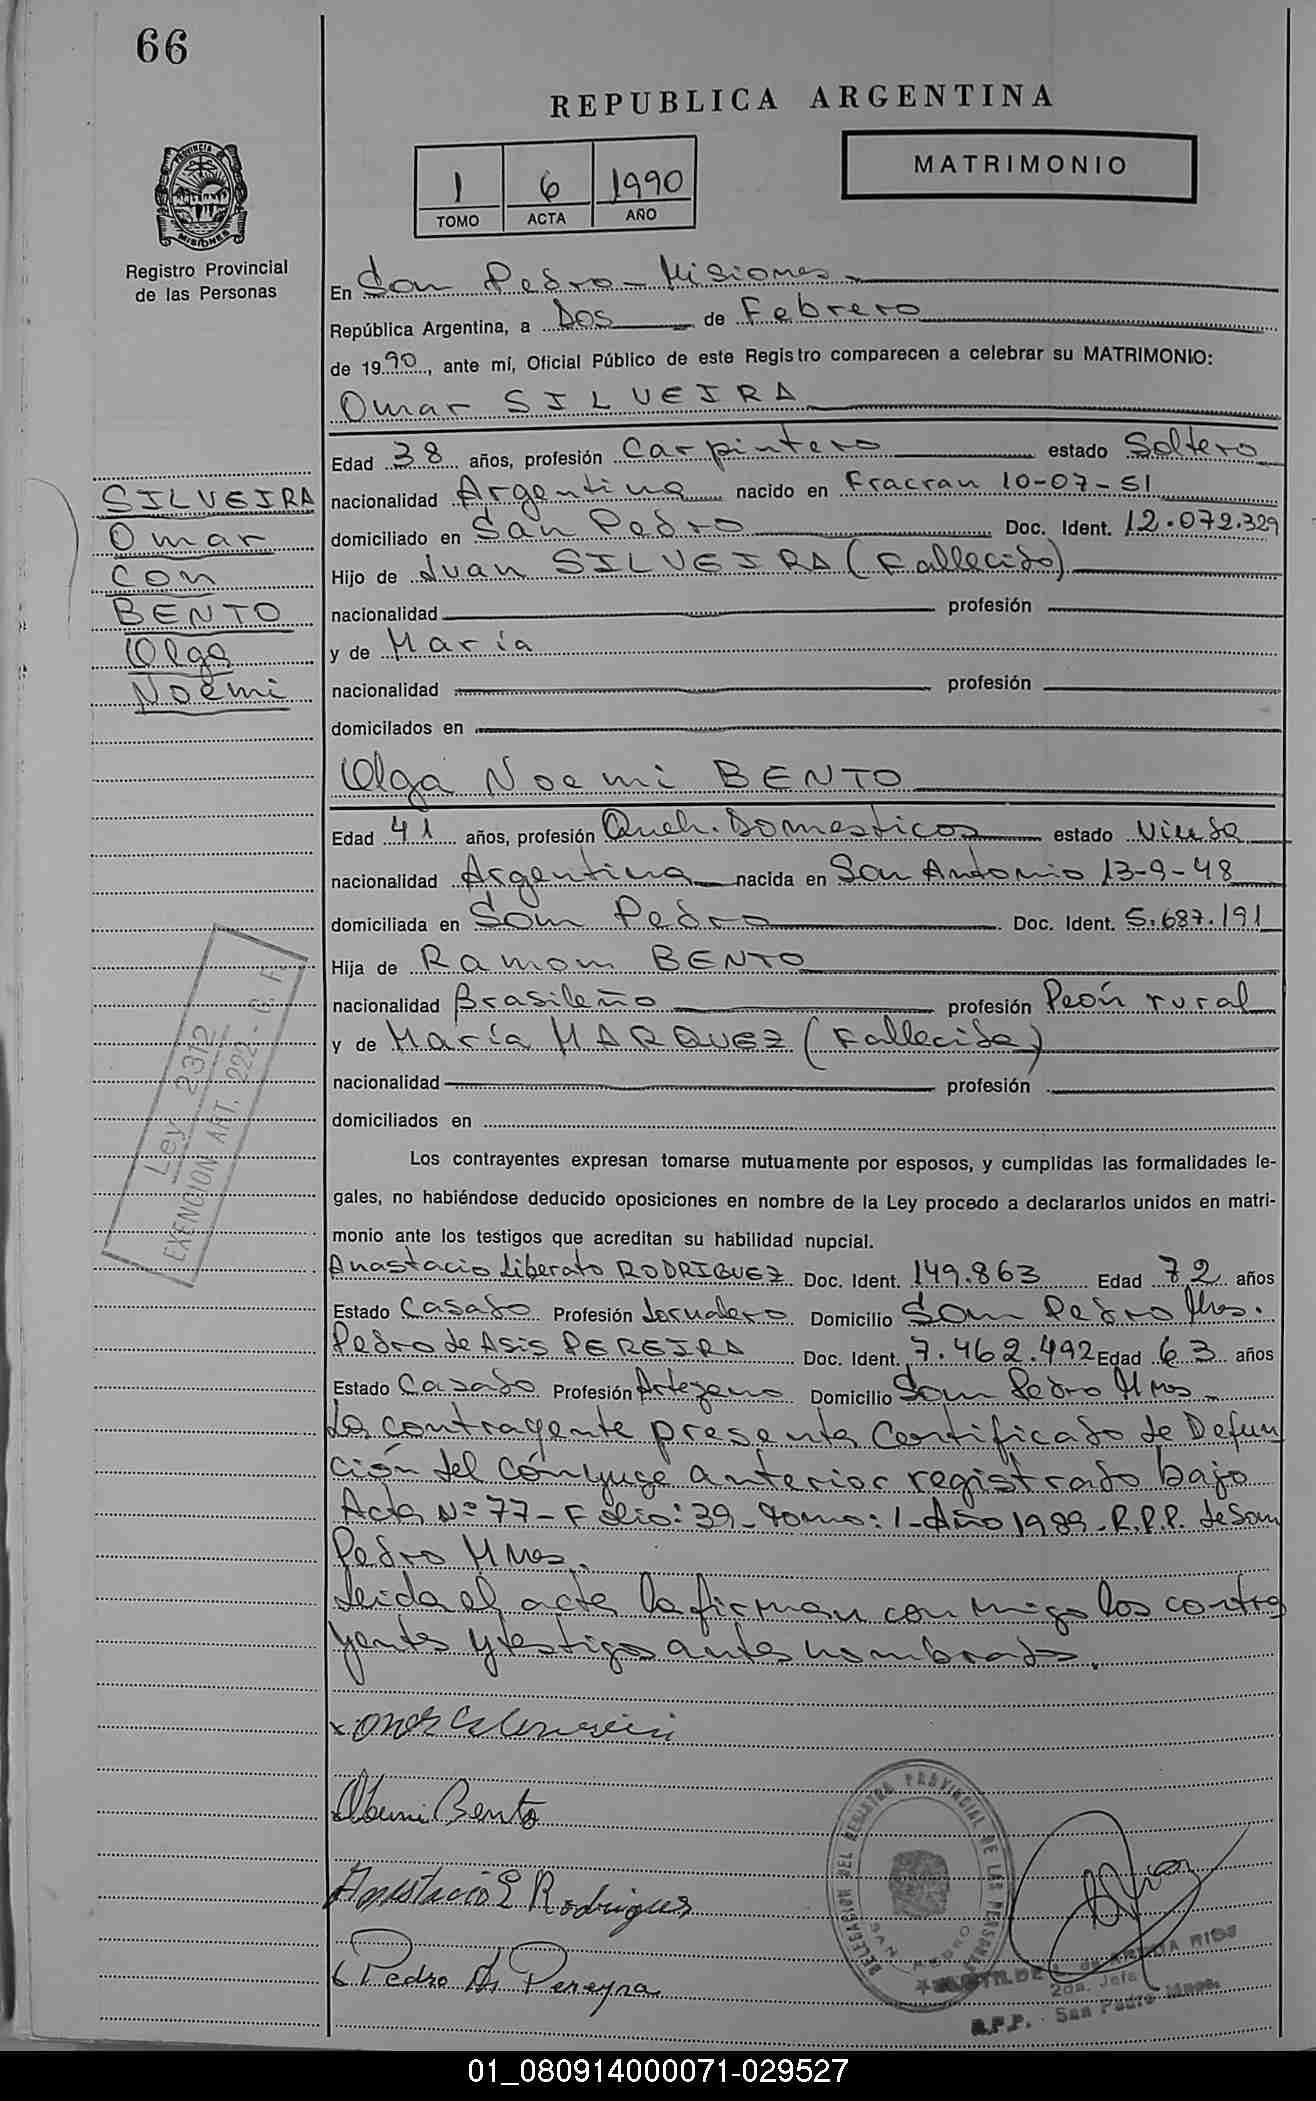 66
REPUBLICA ARGENTINA
MATRIMONIO
1 6 1990
TOMO ACTA AÑO
PROVINCIA
MISIONES
Registro Provincial
de las Personas
En San Pedro - Misiones
República Argentina, a Dos de Febrero
de 1990, ante mí, Oficial Público de este Registro comparecen a celebrar su MATRIMONIO:
Omar SILVEIRA
Edad 38 años, profesión Carpintero estado Soltero
SILVEIRA
Omar
con
BENTO
Olga
Noemi
nacionalidad Argentina nacido en Fracran 10-07-51
domiciliado en San Pedro Doc. Ident. 12.072.329
Hijo de Juan SILVEIRA (Fallecido)
nacionalidad profesión
y de María
nacionalidad profesión
domicilados en
Olga Noemi BENTO
Edad 41 años, profesión Queh. Domesticos estado Viuda
nacionalidad Argentina nacida en San Antonio 13-9-48
domiciliada en San Pedro Doc. Ident. 5.687.191
Hija de Ramon BENTO
nacionalidad Brasileño profesión Peón rural
y de María MARQUEZ (Fallecida)
nacionalidad profesión
domiciliados en
Ley 2312
EXENCION ART. 222 - C. F.
Los contrayentes expresan tomarse mutuamente por esposos, y cumplidas las formalidades le-
gales, no habiéndose deducido oposiciones en nombre de la Ley procedo a declararlos unidos en matri-
monio ante los testigos que acreditan su habilidad nupcial.
Anastacio Liberato RODRIGUEZ Doc. Ident. 149.863 Edad 72 años
Estado Casado Profesión Jornalero Domicilio San Pedro Mnes.
Pedro de Asis PEREIRA Doc. Ident. 7.462.492 Edad 63 años
Estado Casado Profesión Artezano Domicilio San Pedro Mnes
La contrayente presenta Certificado de Defun
ción del cónyuge anterior registrado bajo
Acta Nº 77 - Folio: 39 - Tomo: 1 - Año 1989 - R.P.P. de San
Pedro Mnes.
Leida el acta la firman con migo los contra
yentes y testigos antes nombrado.
Bento
Anastacio L Rodrigues
Pedro As Pereyra
DELEGACION DEL REGISTRO PROVINCIAL DE LAS PERSONAS
SAN PEDRO
RIOS
2da. Jefa
R.P.P. - San Pedro Mnes.
01_080914000071-029527